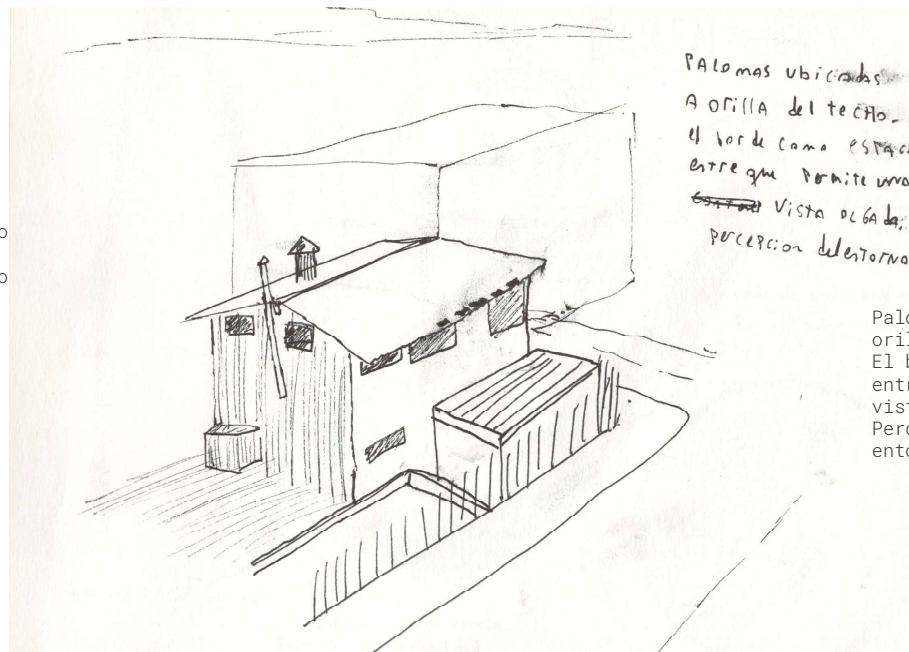 PALOMAS UBICADAS
A ORILLA del techo.
el borde como espac
entre que permite una
vista OLGADA.
percepcion del entorno
o
o
Palo
oril
El b
entr
vist
Perc
ento